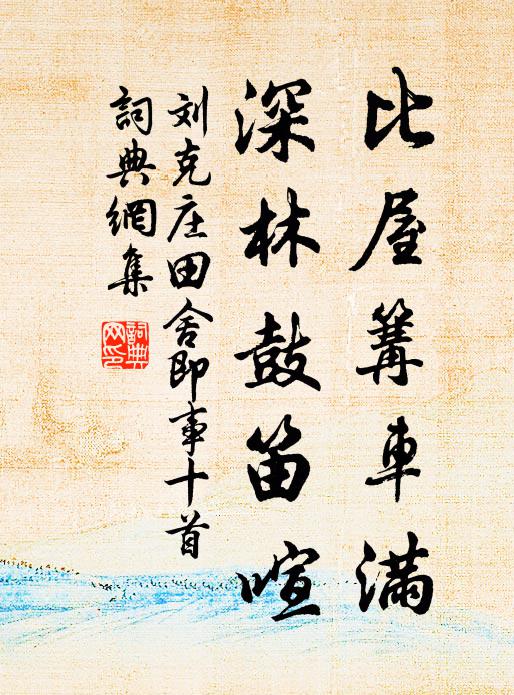 比屋篝車滿
深林鼓笛喧
刘克庄田舍即事十首
詞典網集
詞典網印